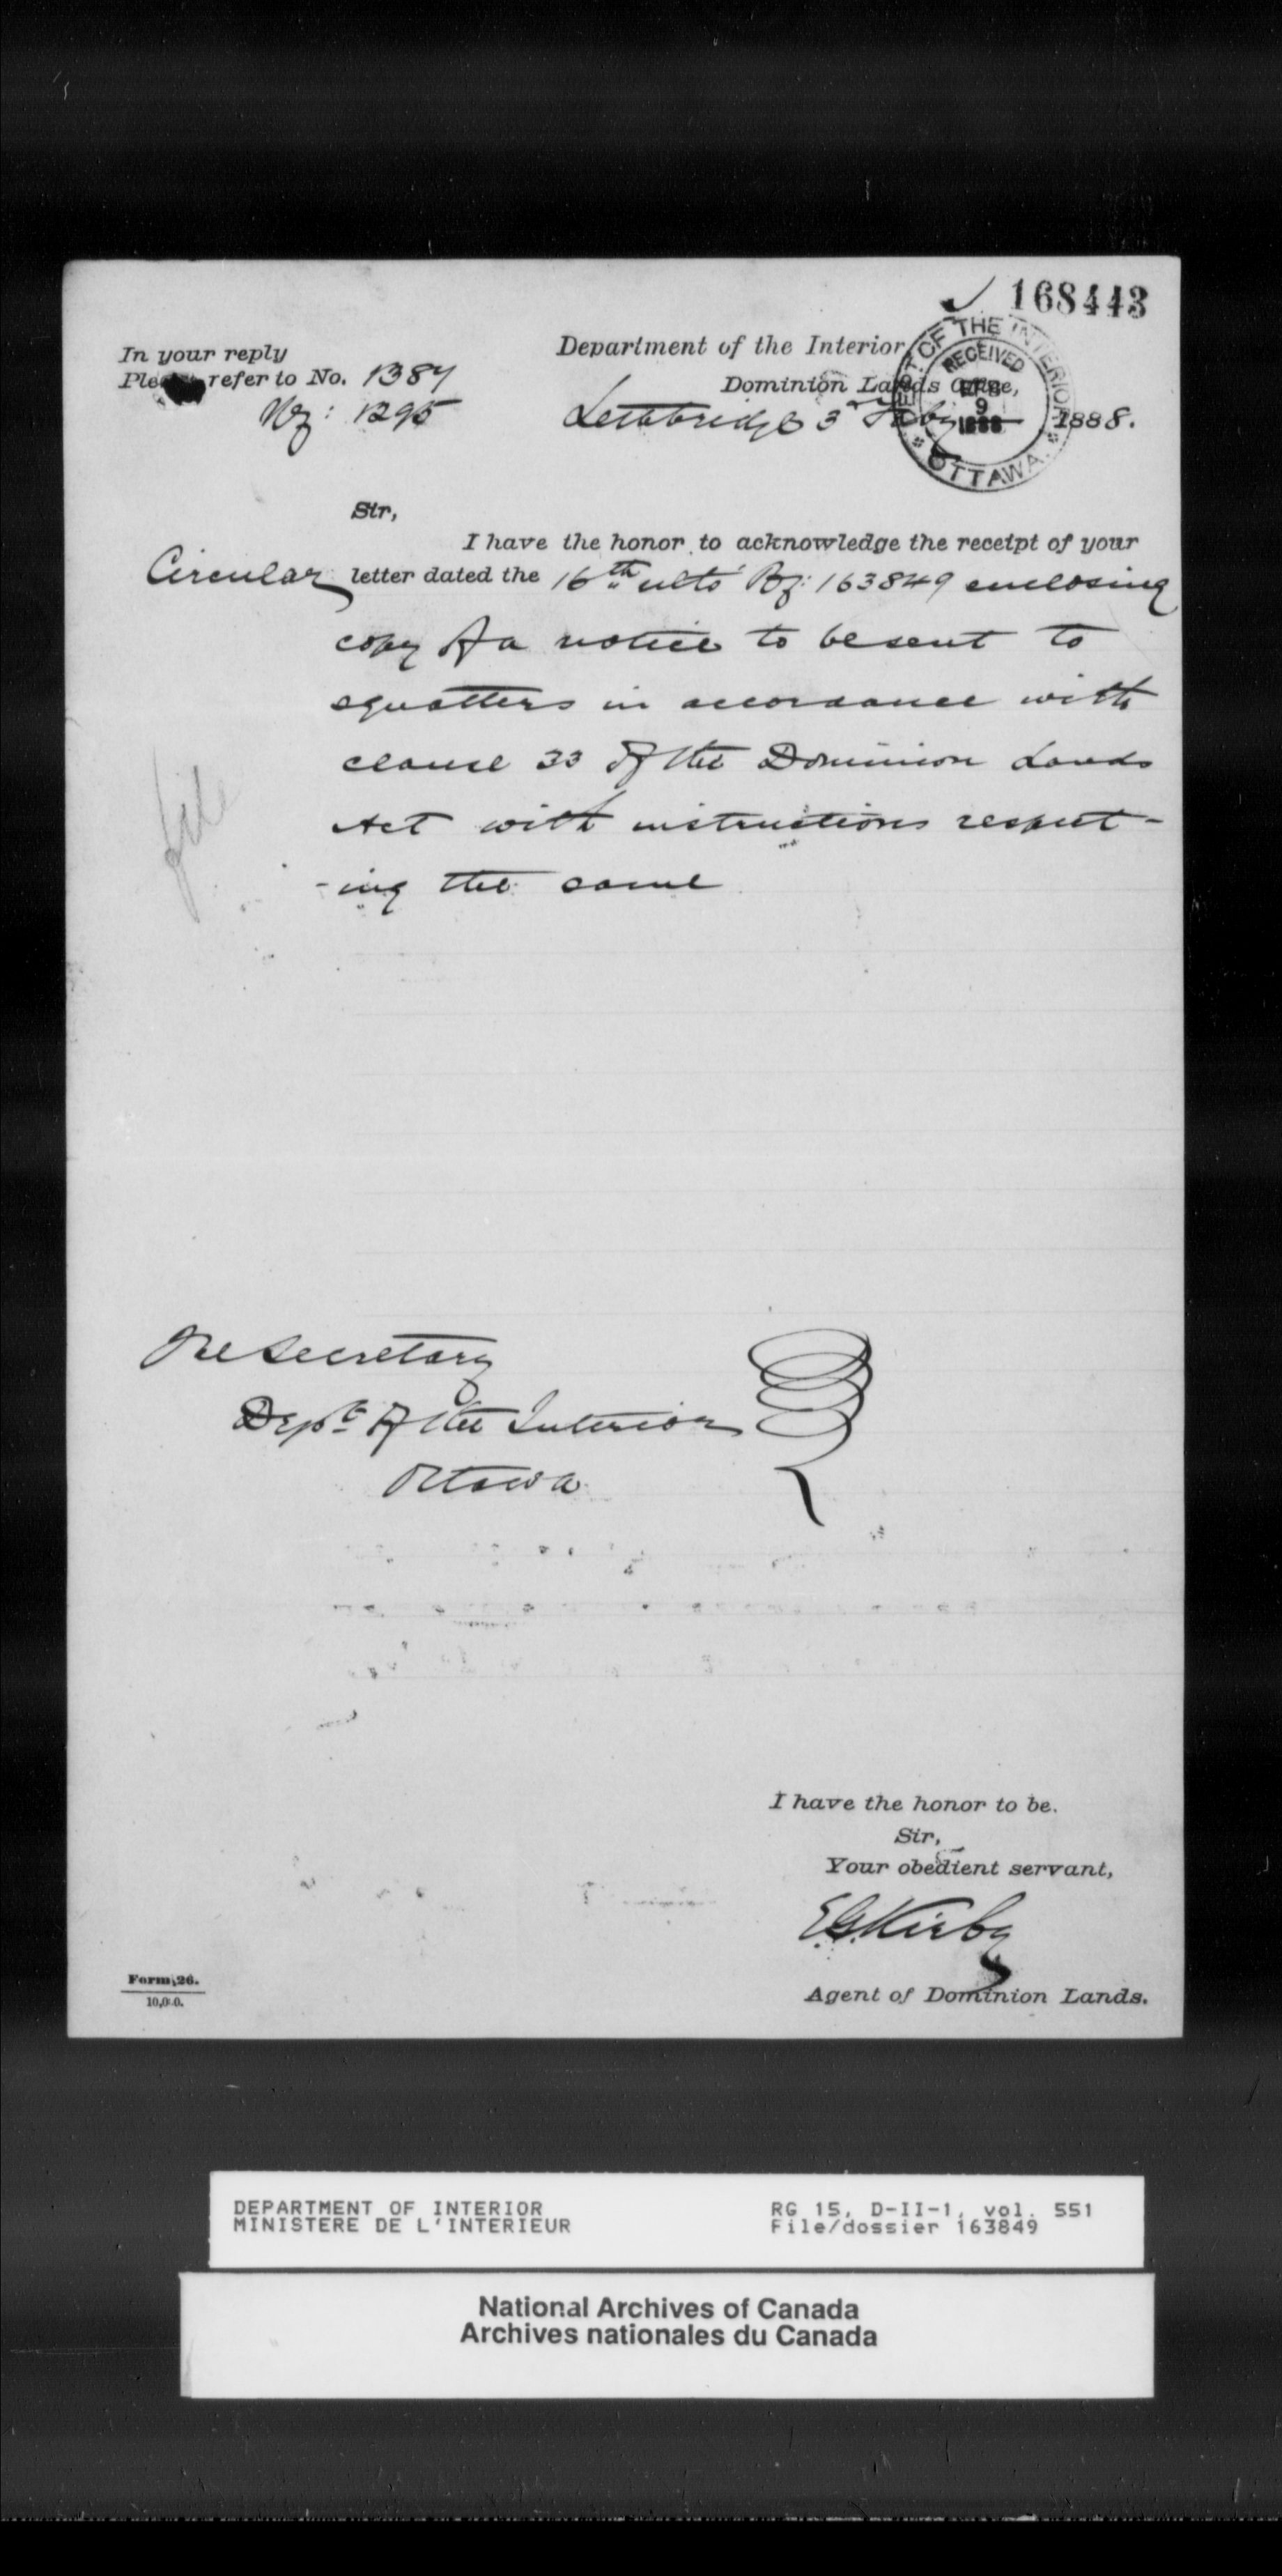 168443
In your reply
Please refer to No. 1387
Rf: 1295
Department of the Interior,
Dominion Lands Office,
Lethbridge 3rd Feby 1888.
DEPT. OF THE INTERIOR
RECEIVED
FEB
9
1888
OTTAWA.
Sir,
I have the honor to acknowledge the receipt of your
Circular letter dated the 16th ulto Rf: 163849 enclosing
copy of a notice to be sent to
squatters in accordance with
clause 33 of the Dominion Lands
Act with instructions respect-
-ing the same
file
The Secretary
Dept of the Interior
Ottawa
I have the honor to be.
Sir,
Your obedient servant,
E G Kirby
Agent of Dominion Lands.
Form 26.
DEPARTMENT OF INTERIOR
MINISTERE DE L'INTERIEUR
RG 15, D-II-1, vol. 551
File/dossier 163849
National Archives of Canada
Archives nationales du Canada